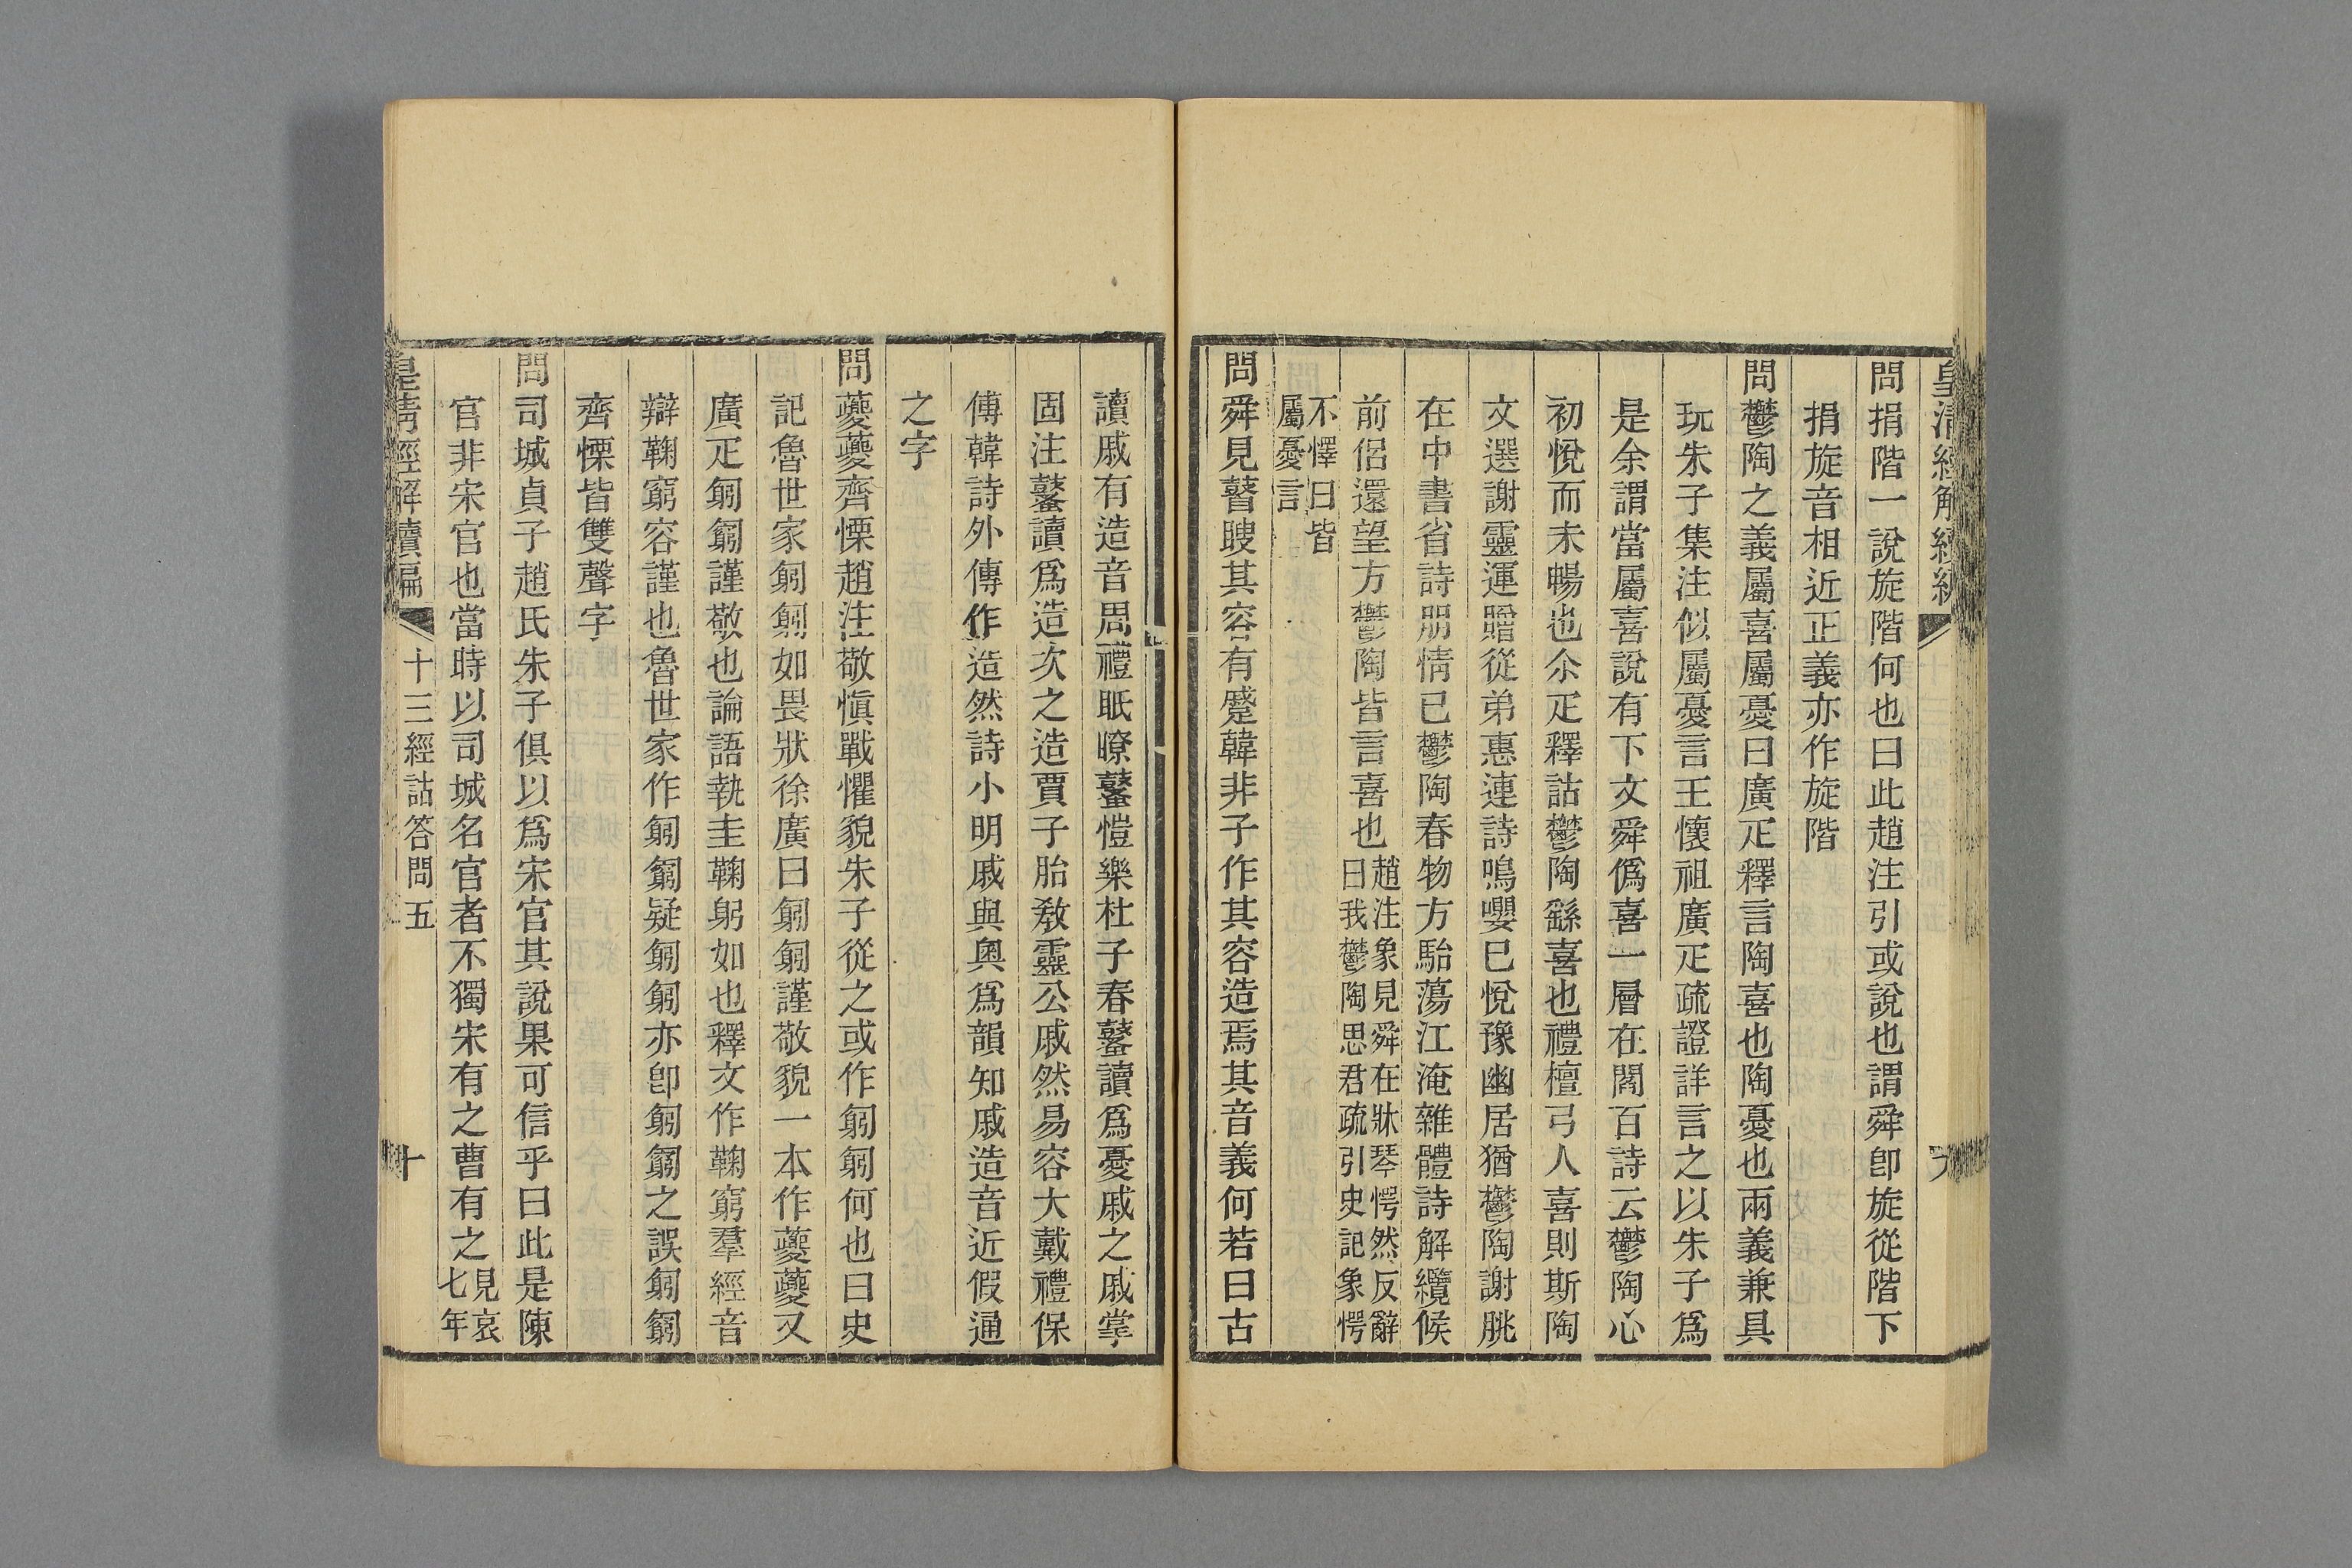 皇清經解續編
問捐階一說旋階何也曰此趙注引或說也謂舜卽旋從階下
捐旋音相近正義亦作旋階
問鬱陶之義屬喜屬憂曰廣疋釋言陶喜也陶憂也兩義兼具
玩朱子集注似屬憂言王懷祖廣疋疏證詳言之以朱子爲
是余謂當屬喜說有下文舜僞喜一層在閻百詩云鬱陶心
初悅而未暢也尒疋釋詁鬱陶繇喜也禮檀弓人喜則斯陶
文選謝靈運贈從弟惠連詩鳴嚶已悅豫幽居猶鬱陶謝朓
在中書省詩朋情已鬱陶春物方駘蕩江淹雜體詩解纜候
前侶還望方鬱陶皆言喜也趙注象見舜在牀琴愕然反辭
曰我鬱陶思君疏引史記象愕
不懌曰皆
屬憂言
問舜見瞽瞍其容有蹙韓非子作其容造焉其音義何若曰古
讀戚有造音周禮眂瞭鼜愷樂杜子春鼜讀爲憂戚之戚掌
固注鼜讀爲造次之造賈子胎敎靈公戚然易容大戴禮保
傅韓詩外傳作造然詩小明戚與奧爲韻知戚造音近假通
之字
問夔夔齊慄趙注敬愼戰懼貌朱子從之或作匑匑何也曰史
記魯世家匑匑如畏狀徐廣曰匑匑謹敬貌一本作夔夔又
廣疋匑匔謹敬也論語執圭鞠躬如也釋文作鞠窮羣經音
辯鞠窮容謹也魯世家作匑匔疑匑匑亦卽匑匔之誤匑匔
齊慄皆雙聲字
問司城貞子趙氏朱子俱以爲宋官其說果可信乎曰此是陳
官非宋官也當時以司城名官者不獨宋有之曹有之見哀
七年
皇清經解續編 十三經詁答問五 十